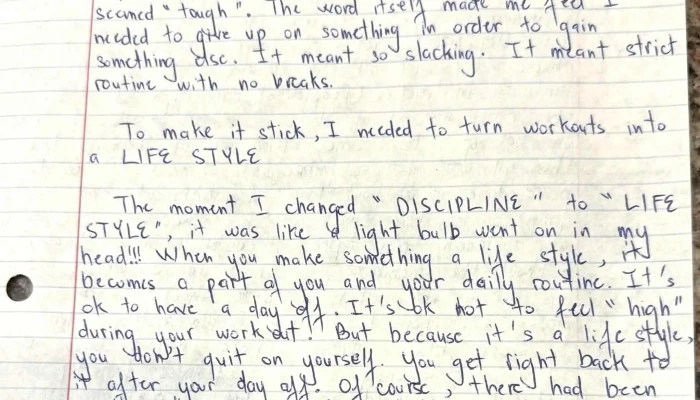 seemed "tough". The word itself made me feel I
needed to give up on something in order to gain
something else. It meant so slacking. It meant strict
routine with no breaks.
To make it stick, I needed to turn workouts into
a LIFE STYLE
The moment I changed "DISCIPLINE" to "LIFE
STYLE", it was like a light bulb went on in my
head!!! When you make something a life style, it
becomes a part of you and your daily routine. It's
ok to have a day off. It's ok not to feel "high"
during your work out! But because it's a life style,
you don't quit on yourself. You get right back to
it after your day off. Of course, there had been